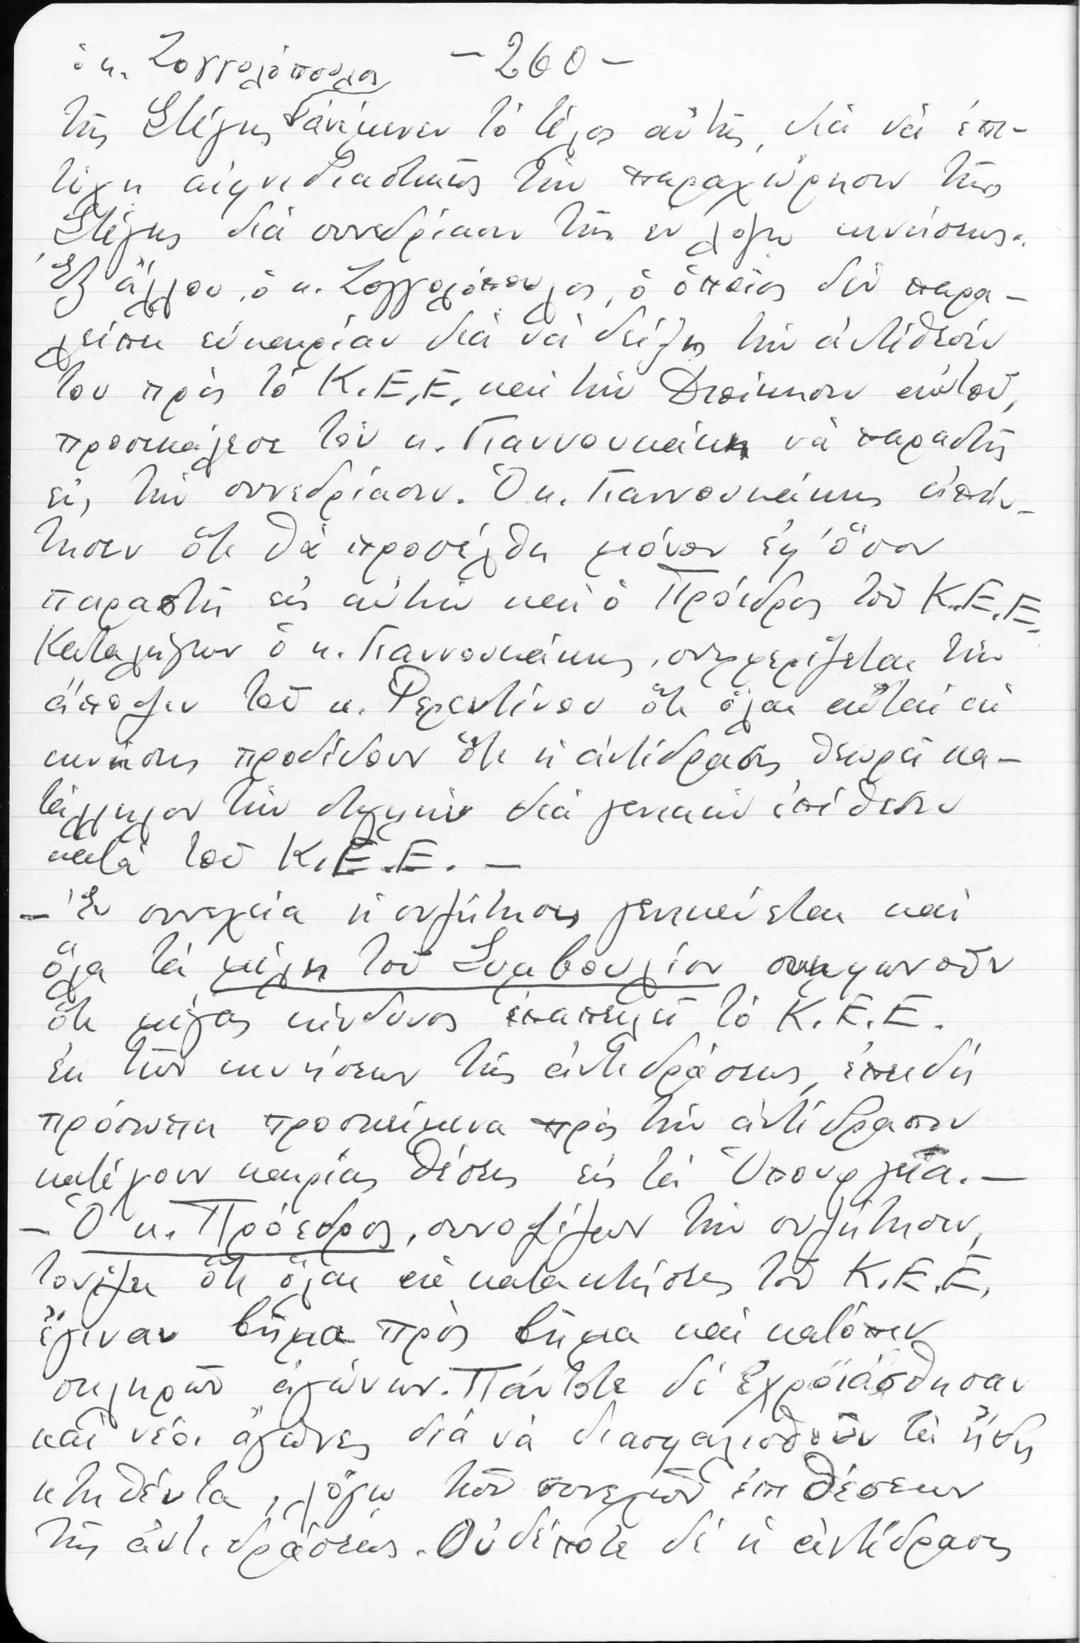 - 260 -
ὁ κ. Ζογγολόπουλος
τῆς Στέγης ἀνέμενεν τὸ τέλος αὐτῆς, διὰ νὰ ἐπι-
τύχῃ αἰφνιδιαστικῶς τὴν παραχώρησιν τῆς
Στέγης διὰ συνεδρίασιν τῆς ἐν λόγῳ κινήσεως.
Ἐξ ἄλλου, ὁ κ. Ζογγολόπουλος, ὁ ὁποῖος δὲν παρα-
λείπει εὐκαιρίαν διὰ νὰ δείξῃ τὴν ἀντίθεσίν
του πρὸς τὸ Κ.Ε.Ε. καὶ τὴν Διοίκησιν αὐτοῦ,
προσεκάλεσε τὸν κ. Γιαννουκάκη νὰ παραστῇ
εἰς τὴν συνεδρίασιν. Ὁ κ. Γιαννουκάκης ἀπήν-
τησεν ὅτι θὰ προσέλθῃ μόνον ἐφ' ὅσον
παραστῇ εἰς αὐτὴν καὶ ὁ Πρόεδρος τοῦ Κ.Ε.Ε.
Καταλήγων ὁ κ. Γιαννουκάκης, συμμερίζεται τὴν
ἄποψιν τοῦ κ. Φερεντίνου ὅτι ὅλαι αὐταὶ αἱ
κινήσεις προδίδουν ὅτι ἡ ἀντίδρασις θεωρεῖ κα-
τάλληλον τὴν στιγμὴν διὰ γενικὴν ἐπίθεσιν
κατὰ τοῦ Κ.Ε.Ε. -
- Ἐν συνεχείᾳ ἡ συζήτησις γενικεύεται καὶ
ὅλα τὰ μέλη τοῦ Συμβουλίου συμφωνοῦν
ὅτι μέγας κίνδυνος ἐπαπειλεῖ τὸ Κ.Ε.Ε.
ἐκ τῶν κινήσεων τῆς ἀντιδράσεως, ἐπειδὴ
πρόσωπα προσκείμενα πρὸς τὴν ἀντίδρασιν
κατέχουν καιρίας θέσεις εἰς τὰ Ὑπουργεῖα. -
- Ὁ κ. Πρόεδρος, συνοψίζων τὴν συζήτησιν,
τονίζει ὅτι ὅλαι αἱ κατακτήσεις τοῦ Κ.Ε.Ε.
ἔγιναν βῆμα πρὸς βῆμα καὶ κατόπιν
σκληρῶν ἀγώνων. Πάντοτε δὲ ἐχρειάσθησαν
καὶ νέοι ἀγῶνες διὰ νὰ διασφαλισθοῦν τὰ ἤδη
κτηθέντα, λόγῳ τῶν συνεχῶν ἐπιθέσεων
τῆς ἀντιδράσεως. Οὐδέποτε δὲ ἡ ἀντίδρασις